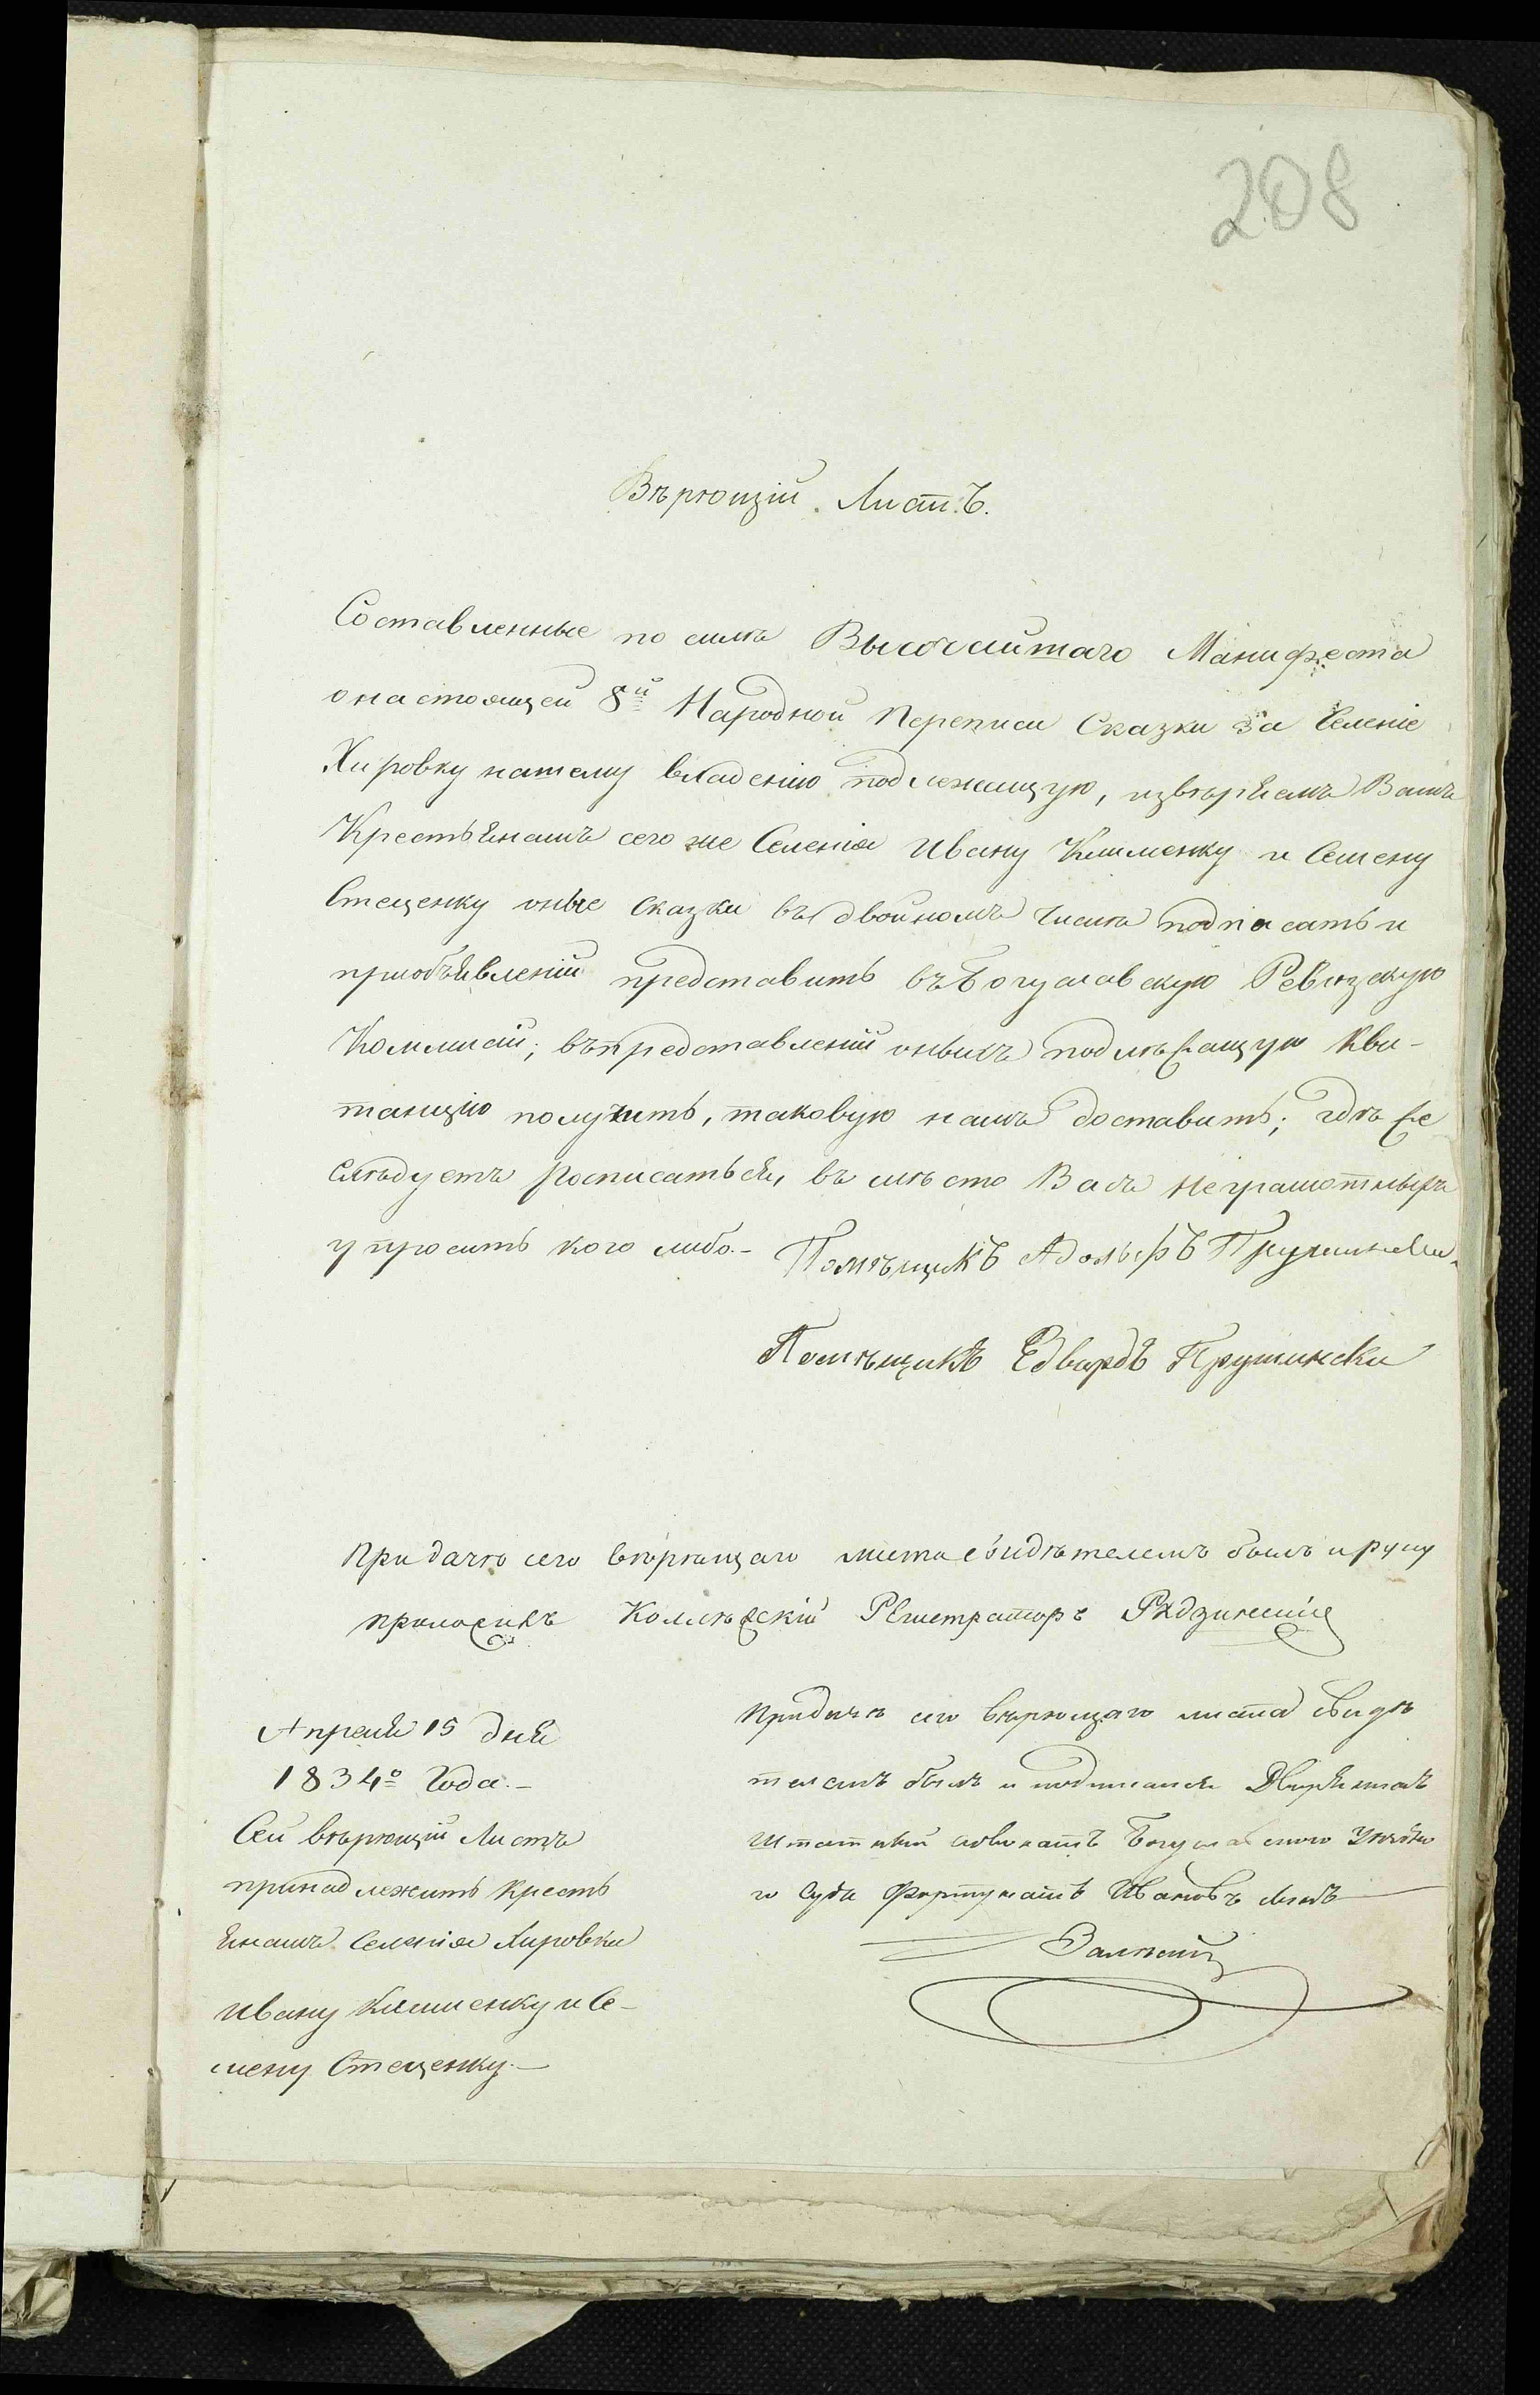 208
Вѣрющій Листъ.
Составленные по силѣ Высочайшаго Манифеста
о настоящей 8й Народной Переписи Сказки за Селеніе
Хировку нашему владенію подлежащую, извѣряемъ Вамъ
Крестьянамъ сего же Селенія Ивану Клименку и Семену
Стеценку оные Сказки въ двойномъ числѣ подписать и
приобъявленіи представить въ Богуславскую Ревизскую
Коммисіи; въ представленіи оныхъ подлежащую Кви-
танцію получить, таковую намъ доставить; гдѣ же
слѣдуетъ росписаться, въ мѣсто Васъ неграмотныхъ
упросить кого либо.- Помѣщикъ Адольфъ Прушински.
Помѣщикъ Едвардъ Прушински
При дачѣ сего вѣрющаго листа свидѣтелемъ былъ и руку
приложилъ Коллежскій Регистраторъ
Апреля 15 дня
1834о Года.-
Сей вѣрющій Листъ
принадлежитъ Кресть
янамъ Селенія Хировки
Ивану Клименку и Се-
мену Стеценку.-
При дачѣ сего вѣрющаго листа свидѣ
телемъ былъ и подписался Дворянинъ
Штатный адвокатъ Богуславского Уѣздно
го Суда Фортунатъ Ивановъ сынъ